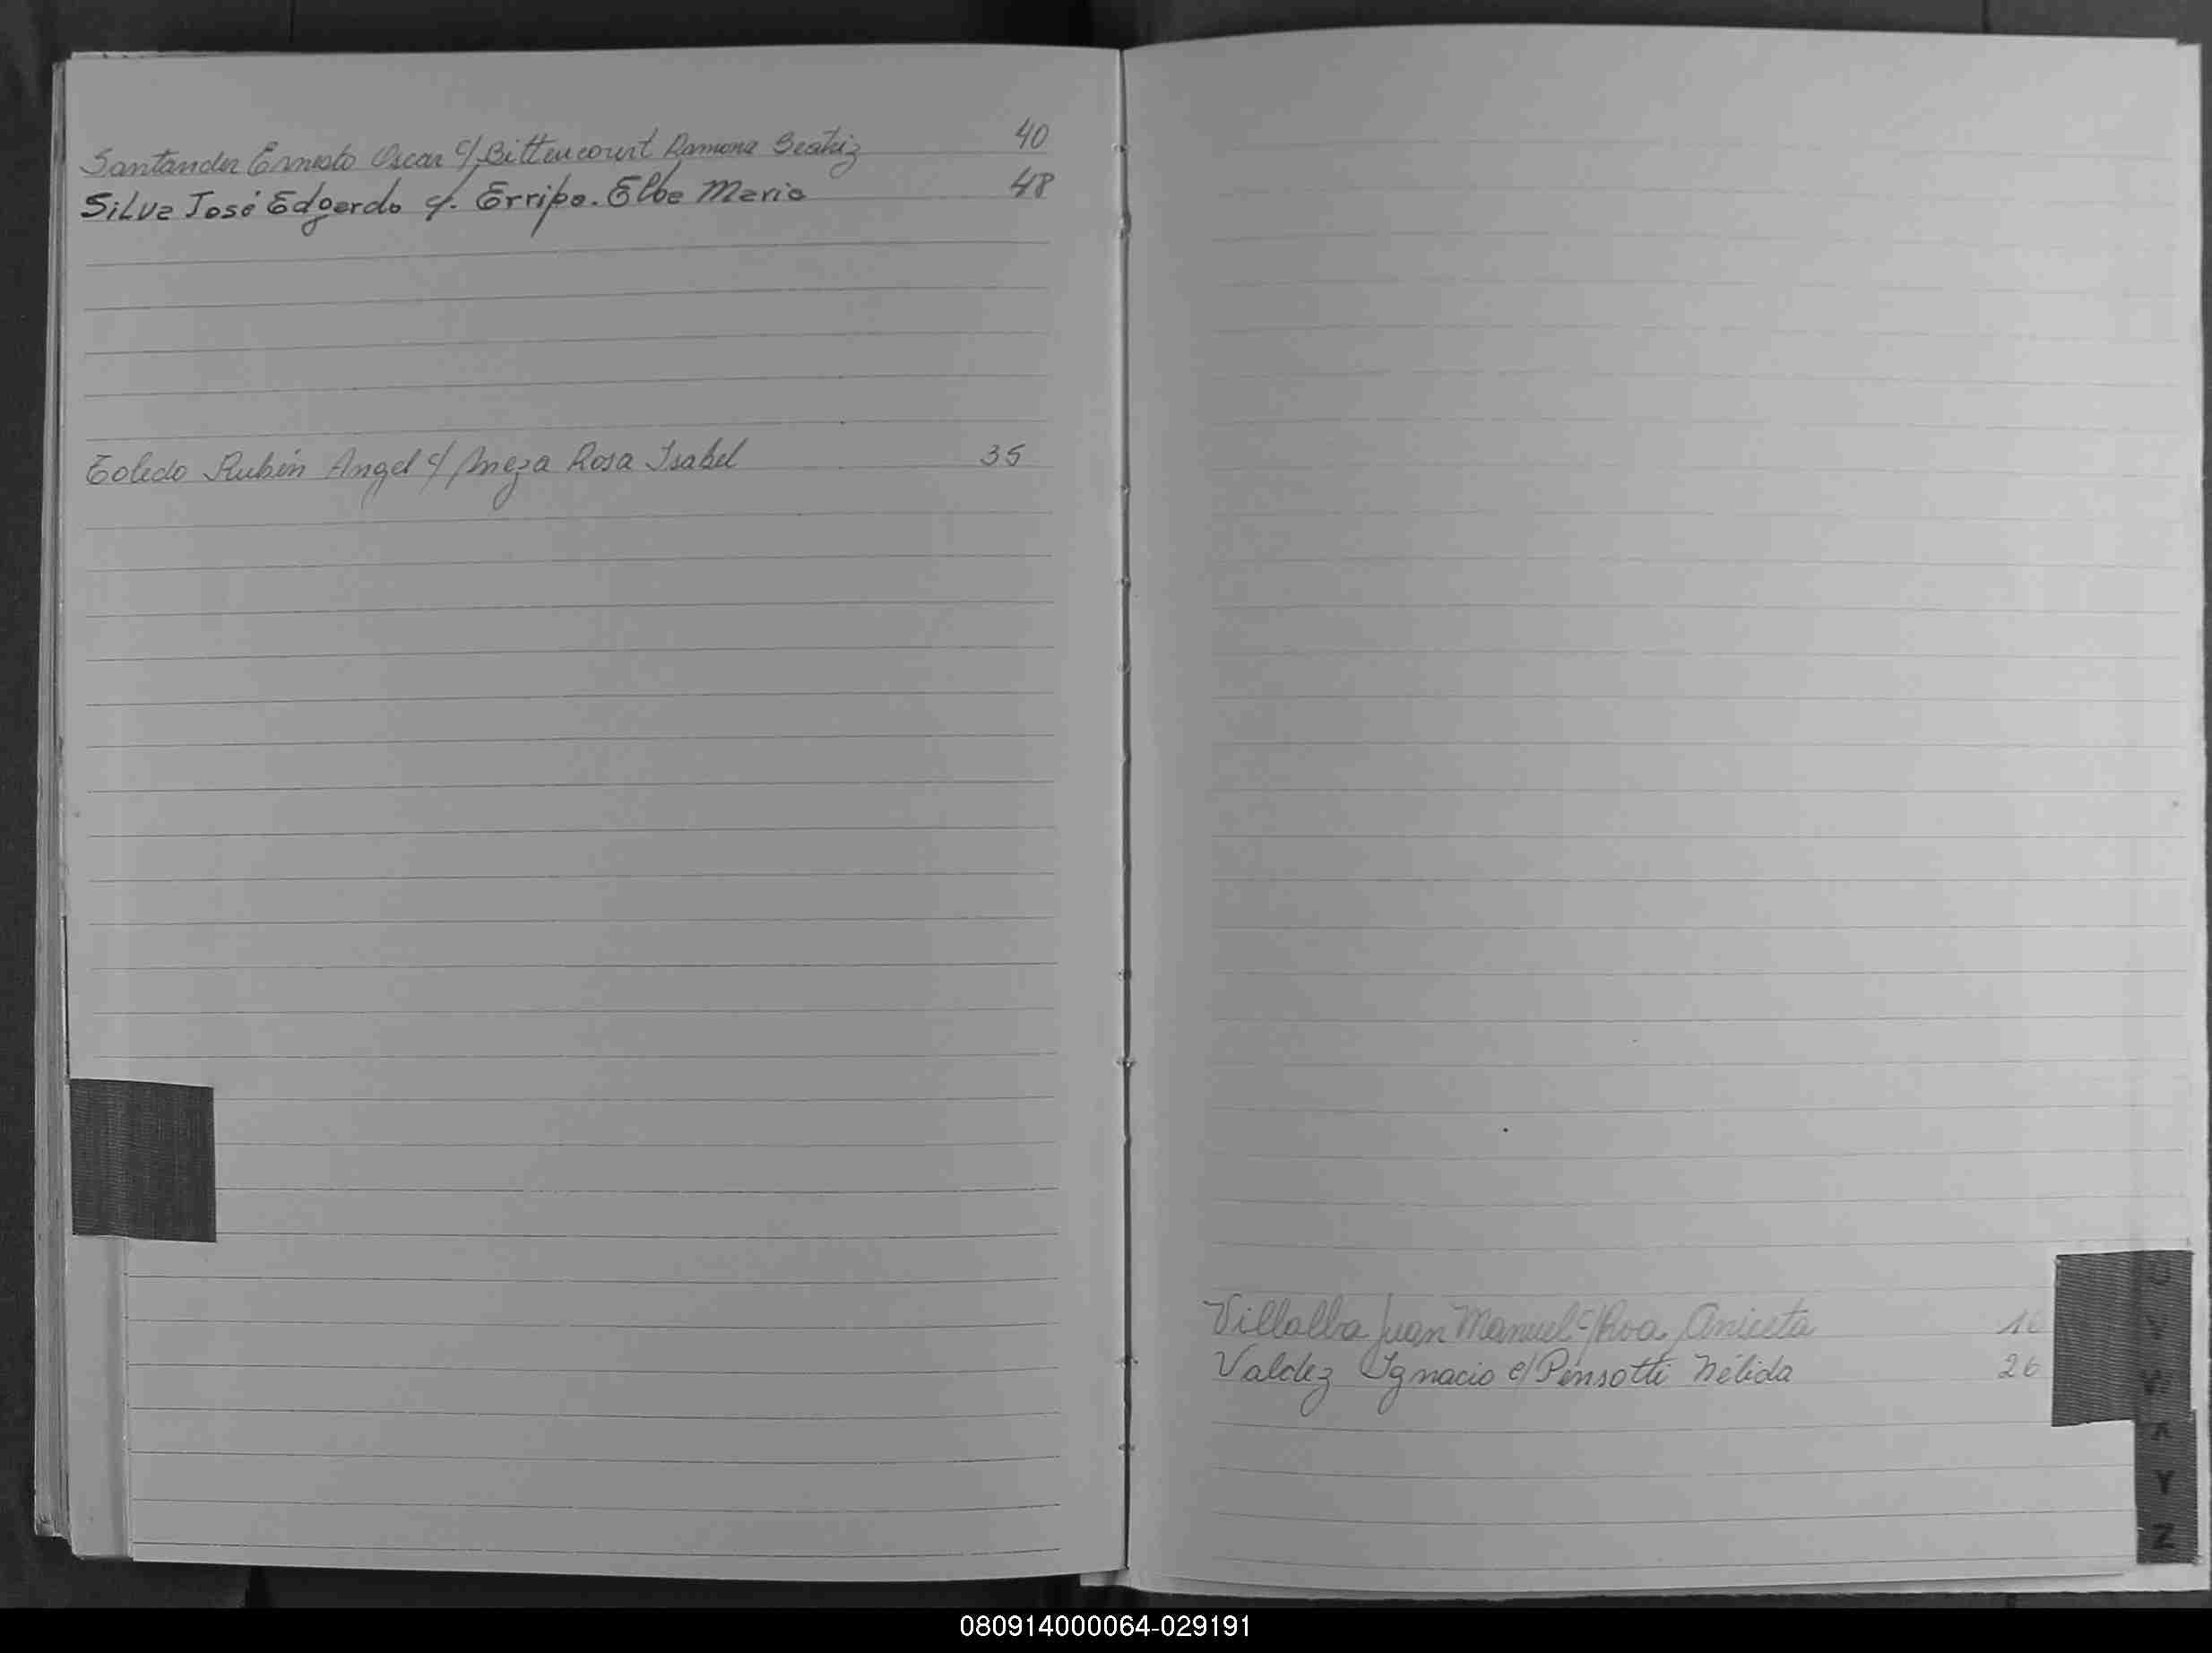 Santander Ernesto Oscar c/ Bittencourt Ramona Beatriz 40
Silva José Edgardo c/. Erripa. Elba Maria 48
Toledo Rubén Angel c/ Meza Rosa Isabel 35
Villalba Juan Manuel c/ Roa, Aniceta
Valdez Ignacio c/ Pensotti Nélida 26
V
Y
Z
080914000064-029191